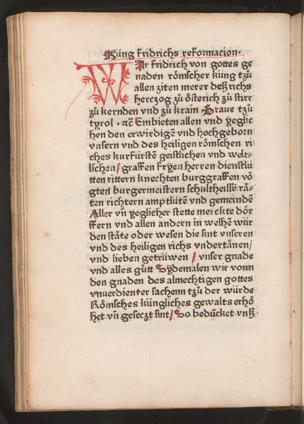 Küng fridrichs reformacion.
WIr fridrich von gottes ge
naden römscher küng tzů
allen ziten merer deß richs
herczog zů österich zů stirr
zů kernden vnd zů krain Graue tzů
tyrol ꝛc̄ Embieten allen vnd yeglic
hen den erwirdigē vnd hochgeborn
vnsern vnd des heiligen römschen ri
ches kurfürstē geistlichen vnd welt-
lichen/ graffen fryen herren dienstlü
ten rittern knechten burggraffen vö
gten burgermeistern schultheissē rä-
ten richtern amptlütē vnd gemeindē
Aller vn̄ yeglicher stette merckte dör
ffern vnd allen andern in welhē wür
den stäte oder wesen die sint vnsern
vnd des heiligen richs vndertänen/
vnd lieben getrüwen/ vnser gnade
vnd alles gůtt Sydemalen wir vonn
den gnaden des almechtigen gottes
vnuerdienter sachenn tzů der würde
Römsches küngliches gewalts erhö
het vn̄ geseczt sint/ So bedücket vnß